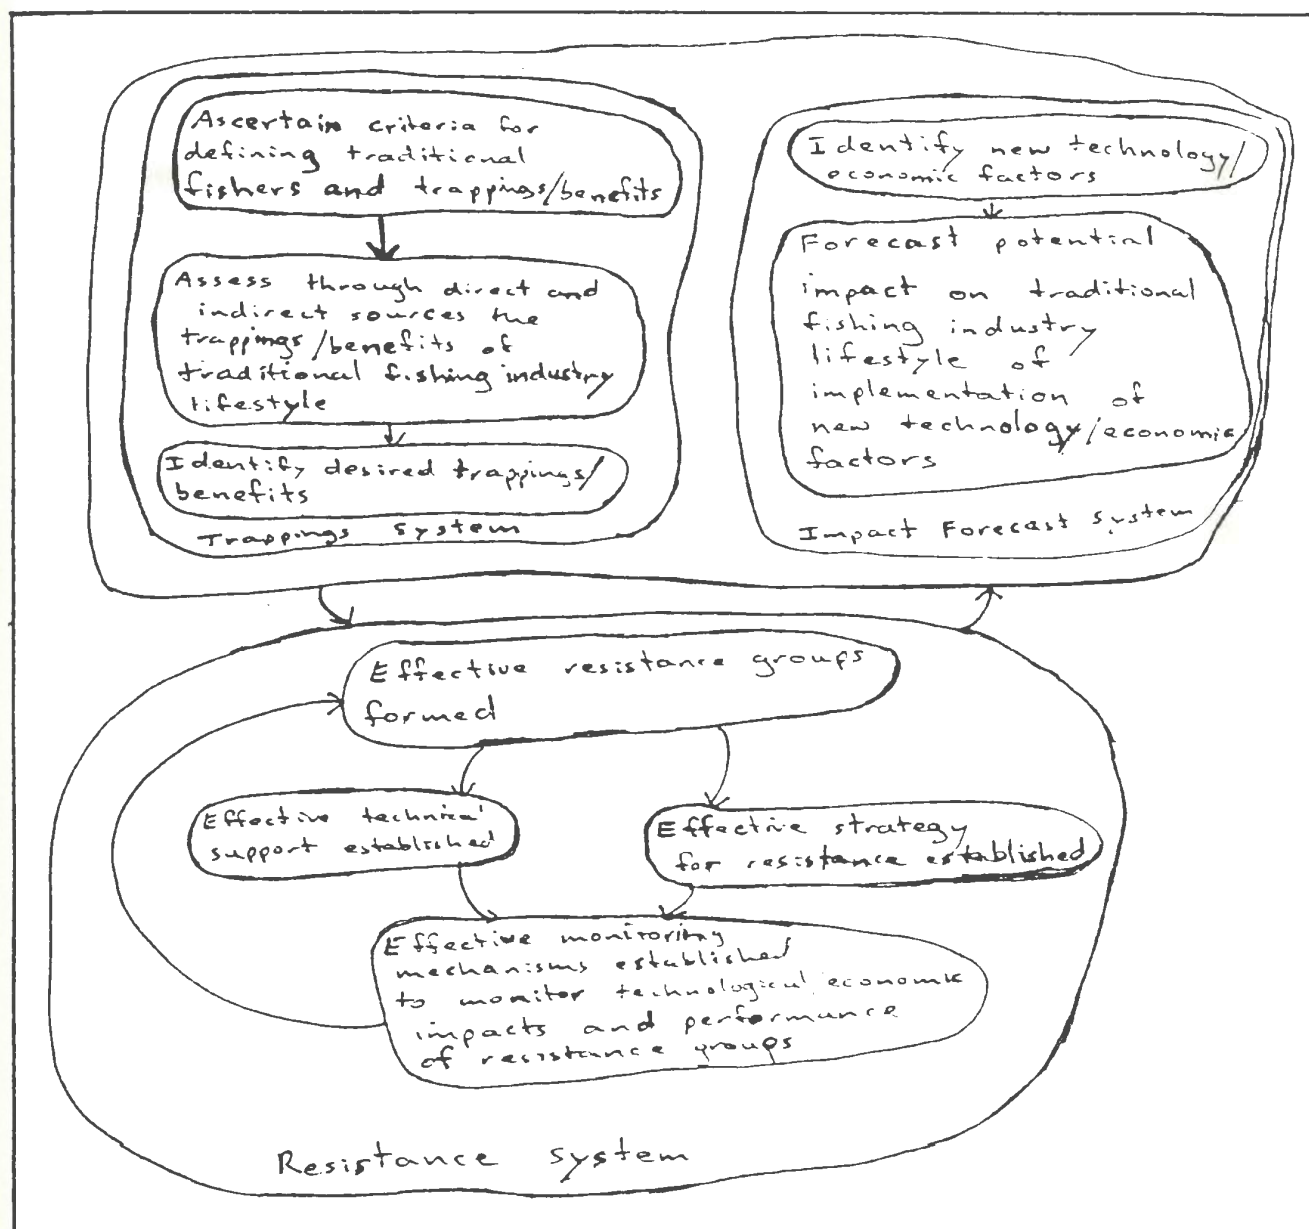 Ascertain criteria for
defining traditional
fishers and trappings/benefits
Assess through direct and
indirect sources the
trappings/benefits of
traditional fishing industry
lifestyle
Identify desired trappings/
benefits
Trappings System
Identify new technology/
economic factors
Forecast potential
impact on traditional
fishing industry
lifestyle of
implementation of
new technology/economic
factors
Impact Forecast System
Effective resistance groups
formed
Effective technical
support established
Effective strategy
for resistance established
Effective monitoring
mechanisms established
to monitor technological/economic
impacts and performance
of resistance groups
Resistance system